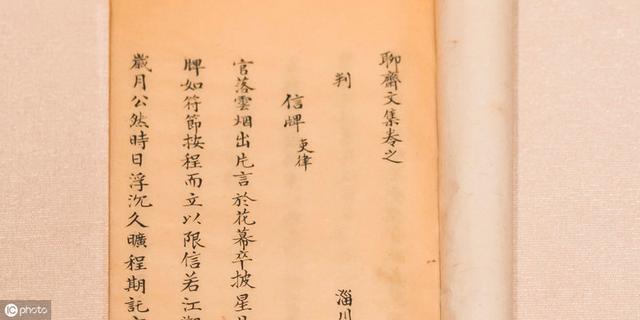 聊齋文集卷之
判
淄川
信牌 吏律
官落雲烟出片言於花幕卒披星
牌如符節按程而立以限信若江
歲月公然時日浮沉久曠程期託
iC photo